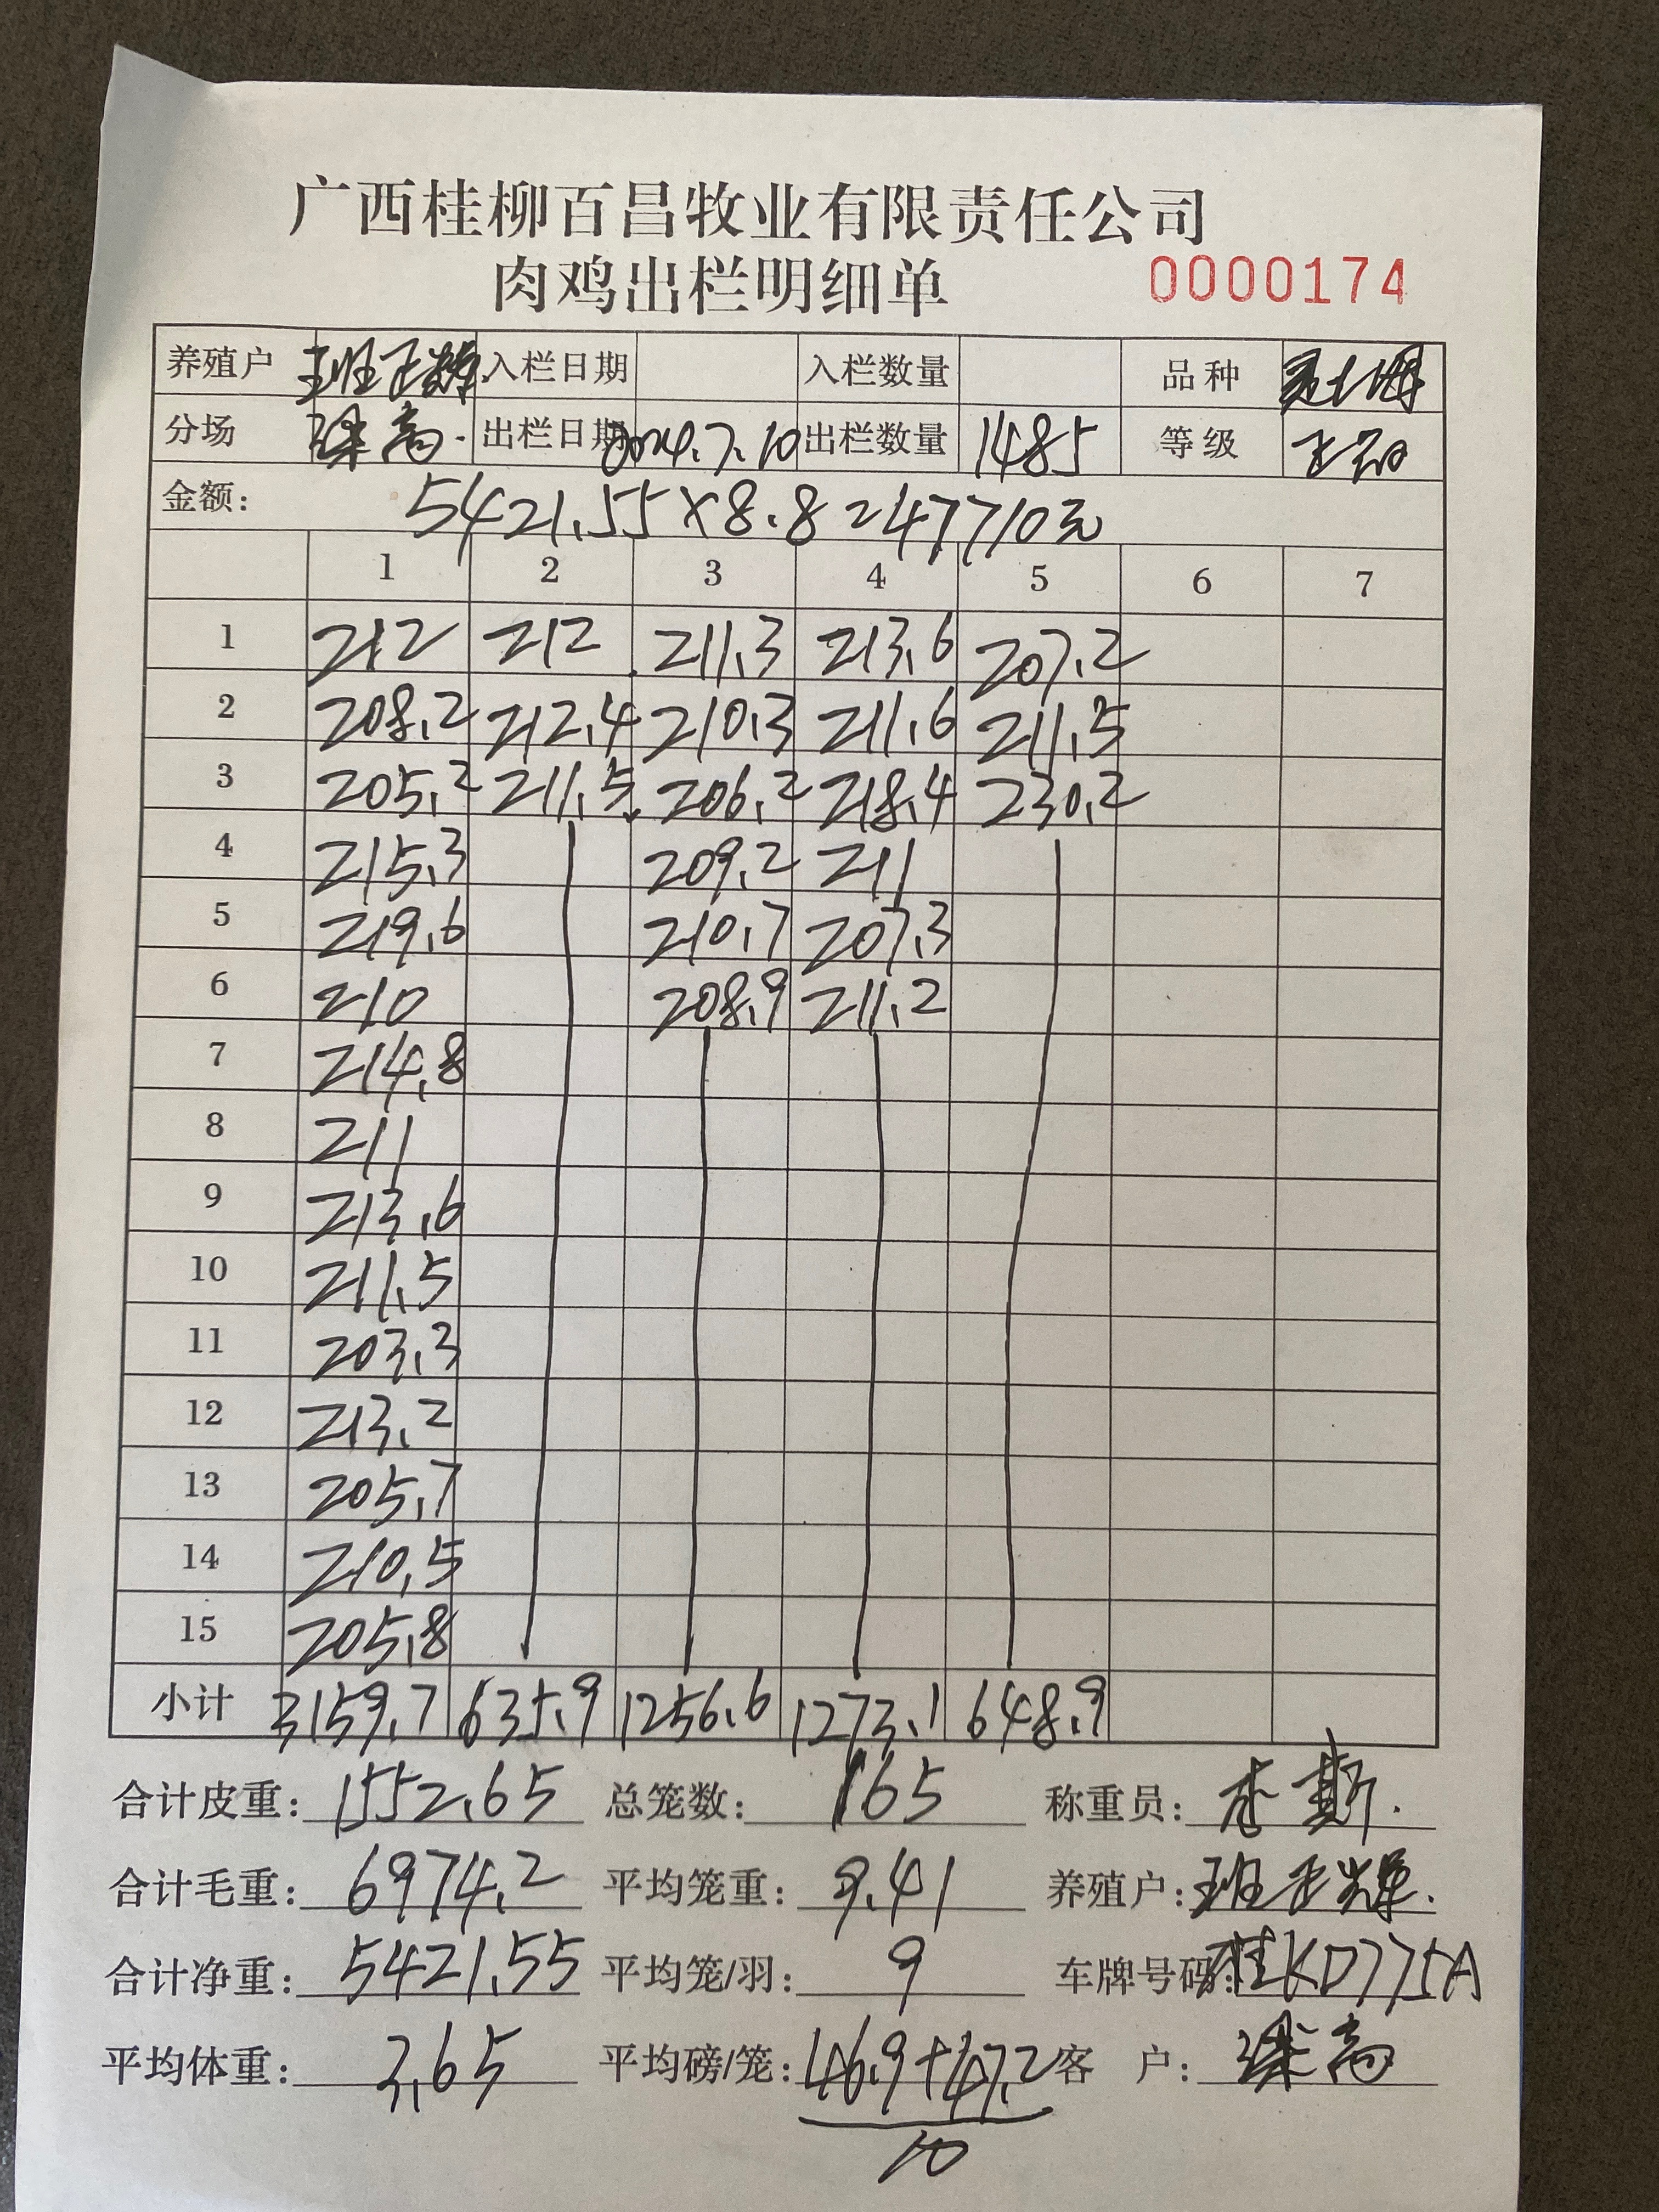 广西桂柳百昌牧业有限责任公司
肉鸡出栏明细单 0000174
养殖户 班 入栏日期 入栏数量 品种
分场 梁高 出栏日期 2024.7.10 出栏数量 1485 等级
金额: 5421.55×8.8=47710元
1 2 3 4 5 6 7
1 212 212 211.3 213.6 207.2
2 208.2 212.4 210.3 211.6 211.5
3 205.2 211.5 206.2 218.4 230.2
4 215.3 209.2 211
5 219.6 210.7 207.3
6 210 208.9 211.2
7 214.8
8 211
9 213.6
10 211.5
11 203.3
12 213.2
13 205.7
14 210.5
15 205.8
小计 3159.7 635.9 1256.6 1273.1 648.9
合计皮重: 1552.65 总笼数: 165 称重员:
合计毛重: 6974.2 平均笼重: 9.41 养殖户: 班
合计净重: 5421.55 平均笼/羽: 9 车牌号码: 桂KD775A
平均体重: 3.65 平均磅/笼: 46.9+47.2 客 户: 梁高
10